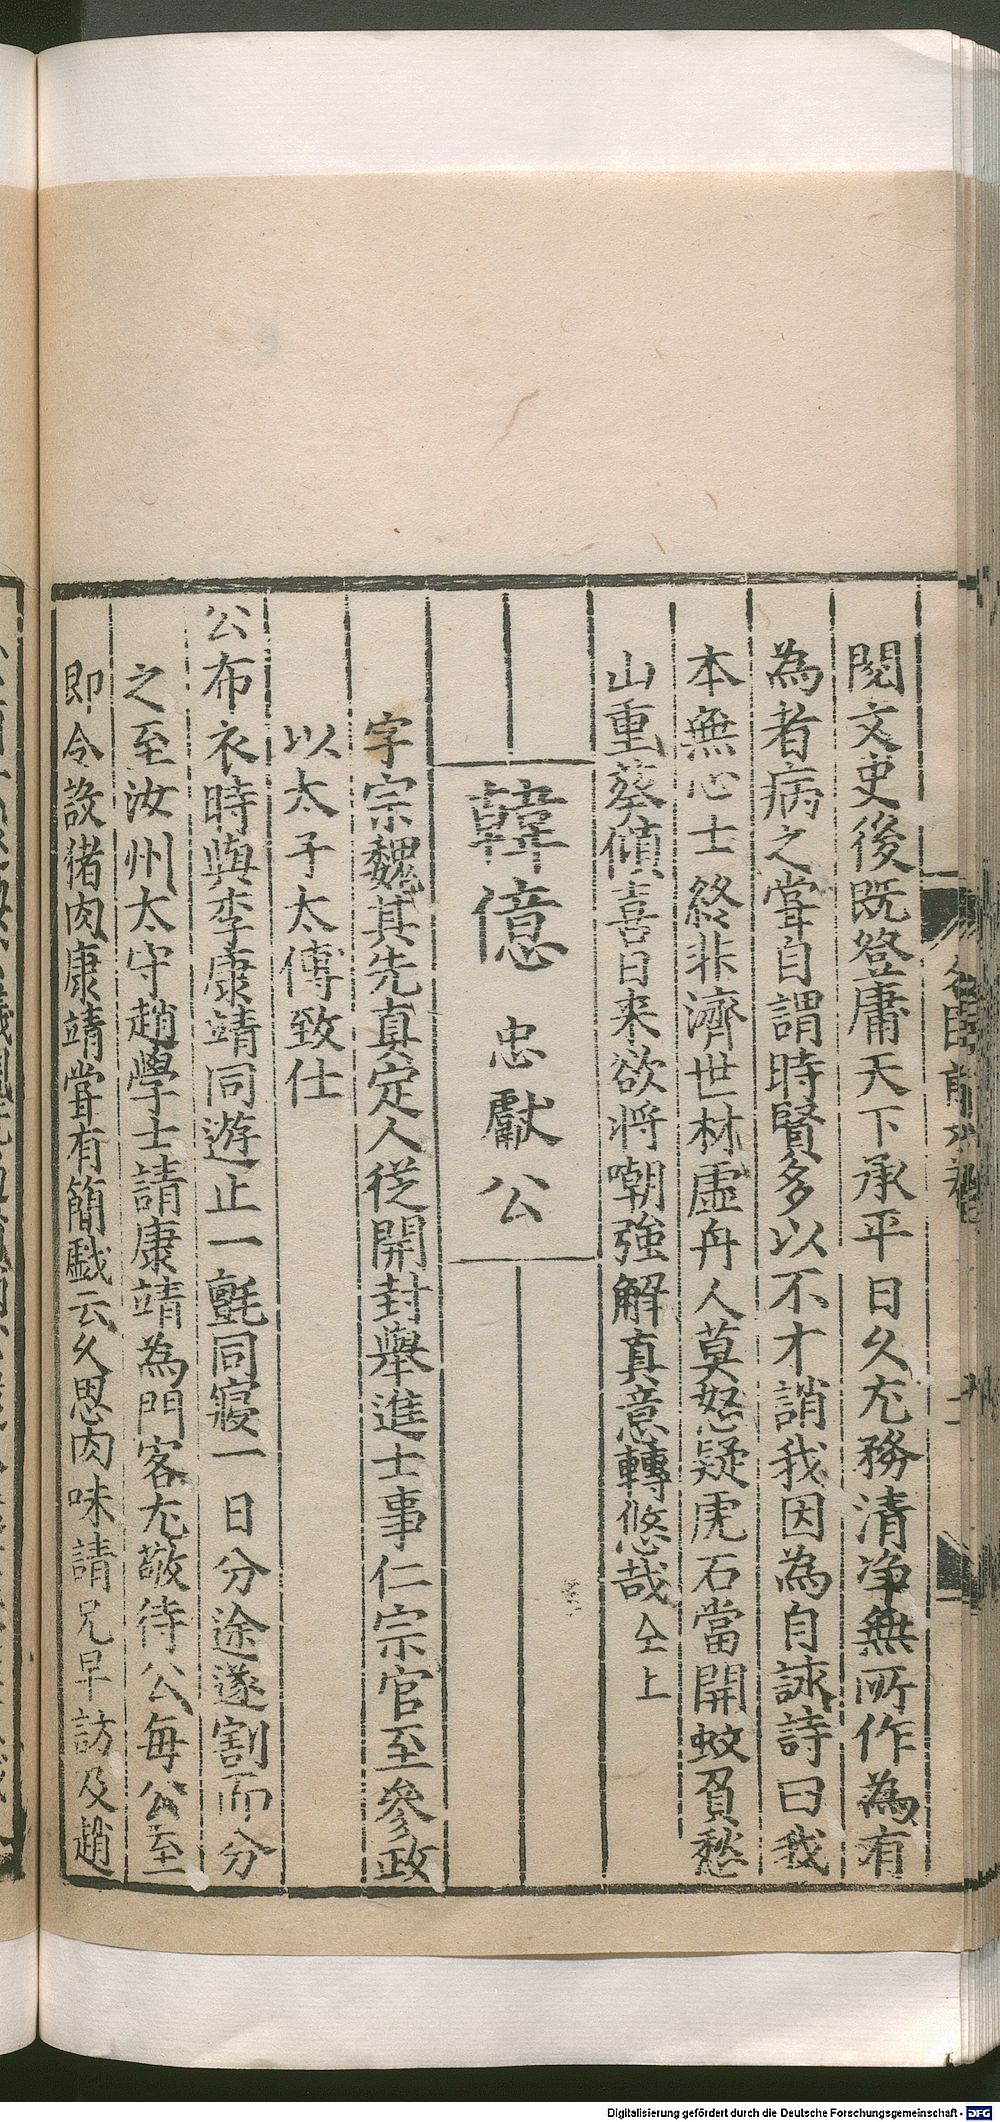 閱文吏後既登庸天下承平日久尤務清净無所作為有
為者病之甞自謂時賢多以不才誚我因為自詠詩曰我
本無心士終非濟世材虛舟人莫怒疑虎石當開蚊負愁
山重葵傾喜日来欲將嘲強解真意轉悠哉仝上
韓億 忠獻公
字宗魏其先真定人從開封舉進士事仁宗官至參政
以太子太傅致仕
公布衣時與李康靖同遊止一氈同寢一日分途遂割而分
之至汝州太守趙學士請康靖為門客尤敬待公每公至
即令設猪肉康靖甞有簡戲云久思肉味請兄早訪及趙
Digitalisierung gefördert durch die Deutsche Forschungsgemeinschaft - DFG